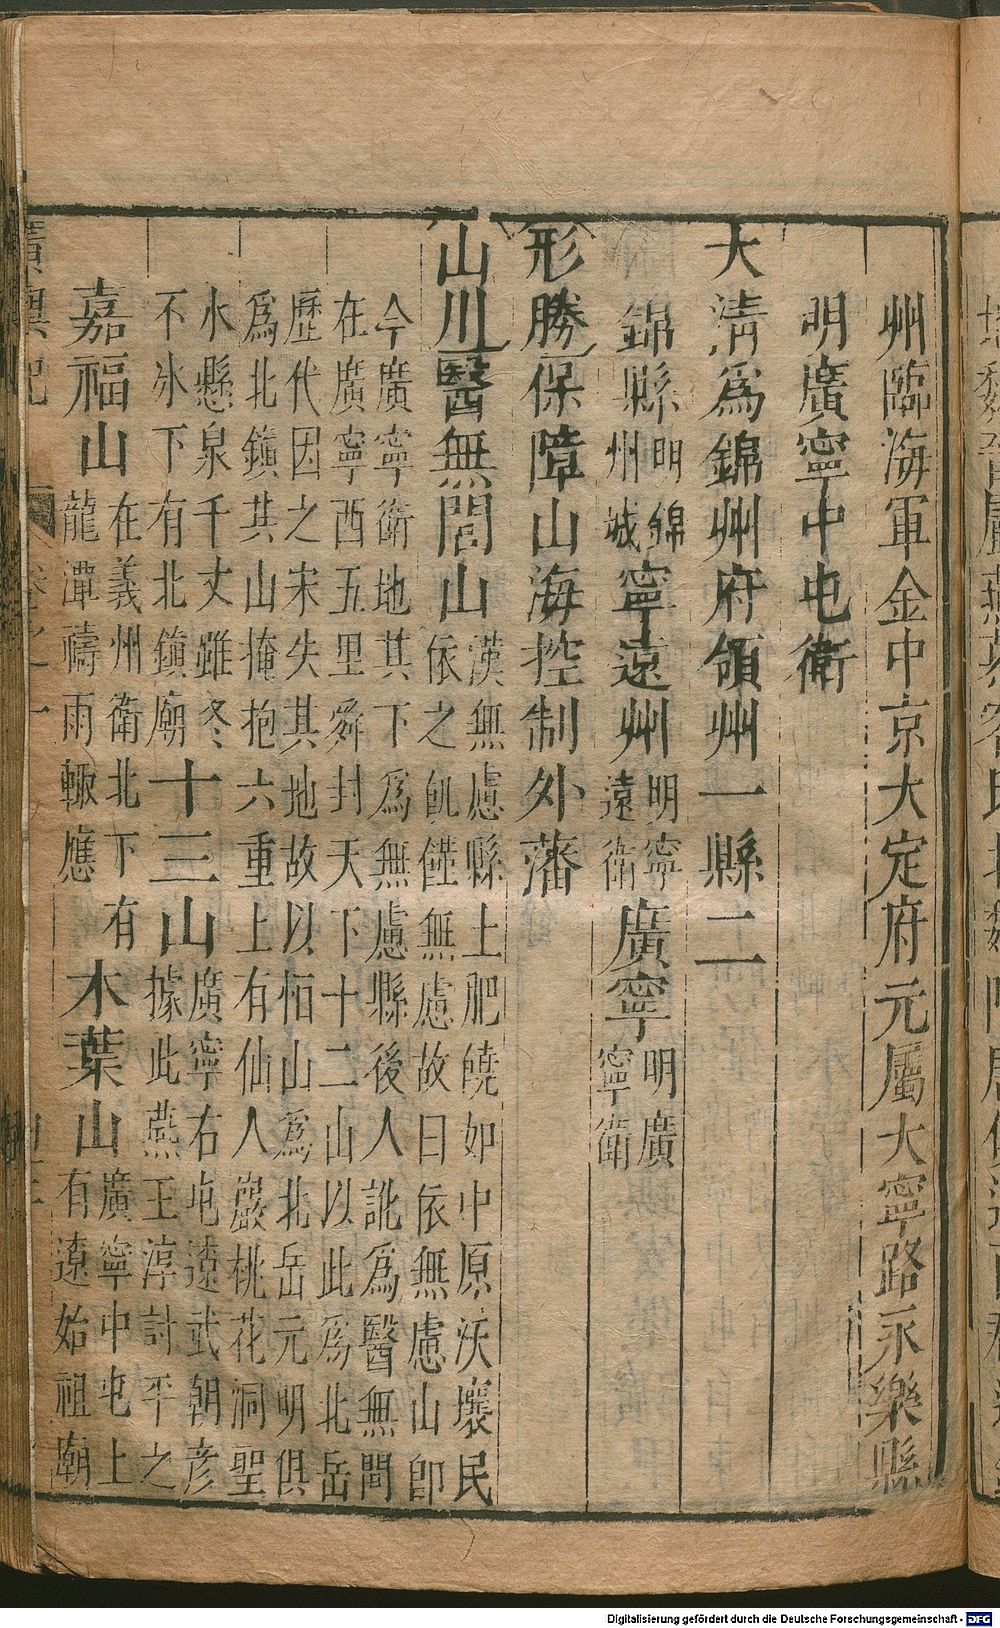 州臨海軍金中京大定府元屬大寧路永樂縣
明廣寧中屯衛
大清爲錦州府領州一縣二
錦縣明錦州城寧遠州明寧遠衛廣寧明廣寧衛
形勝保障山海控制外藩
山川醫無閭山漢無慮縣土肥饒如中原沃壤民
依之飢饉無慮故曰依無慮山卽
今廣寧衛地其下爲無慮縣後人訛爲醫無閭
在廣寧西五里舜封天下十二山以此爲北岳
歷代因之宋失其地故以恒山爲北岳元明俱
爲北鎮其山掩抱六重上有仙人巖桃花洞聖
水懸泉千丈雖冬
不氷下有北鎮廟十三山廣寧右屯遼武朝彥
據此燕王淳討平之
嘉福山在義州衛北下有
龍潭禱雨輙應木葉山廣寧中屯上
有遼始祖廟
廣輿記
卷之
Digitalisierung gefördert durch die Deutsche Forschungsgemeinschaft - DFG